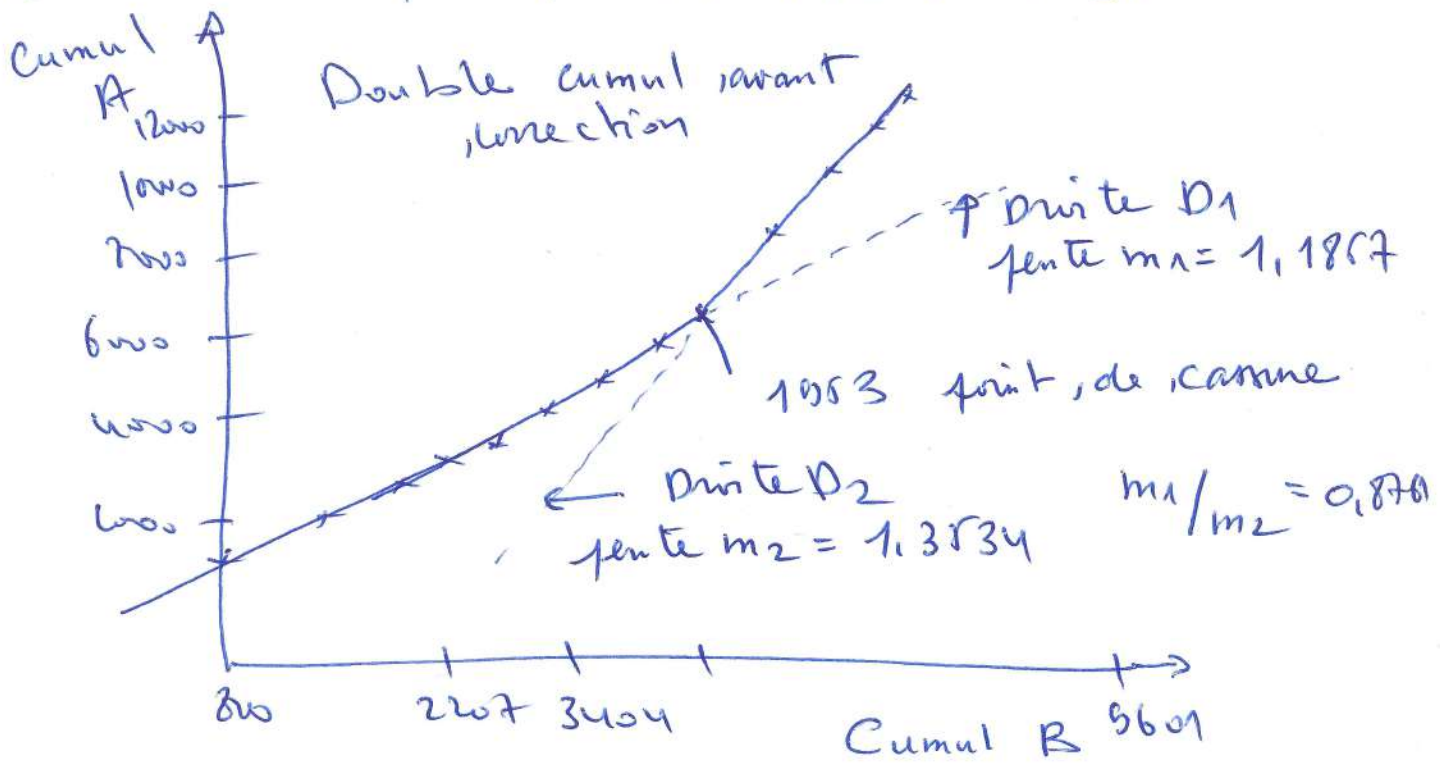 Cumul
A
Double cumul avant
correction
12000
10000
7000
6000
4000
2000
Droite D1
pente m1 = 1,1857
1953 point de cassure
Droite D2
pente m2 = 1.3534
m1/m2 = 0,8761
2207
3404
9601
Cumul B